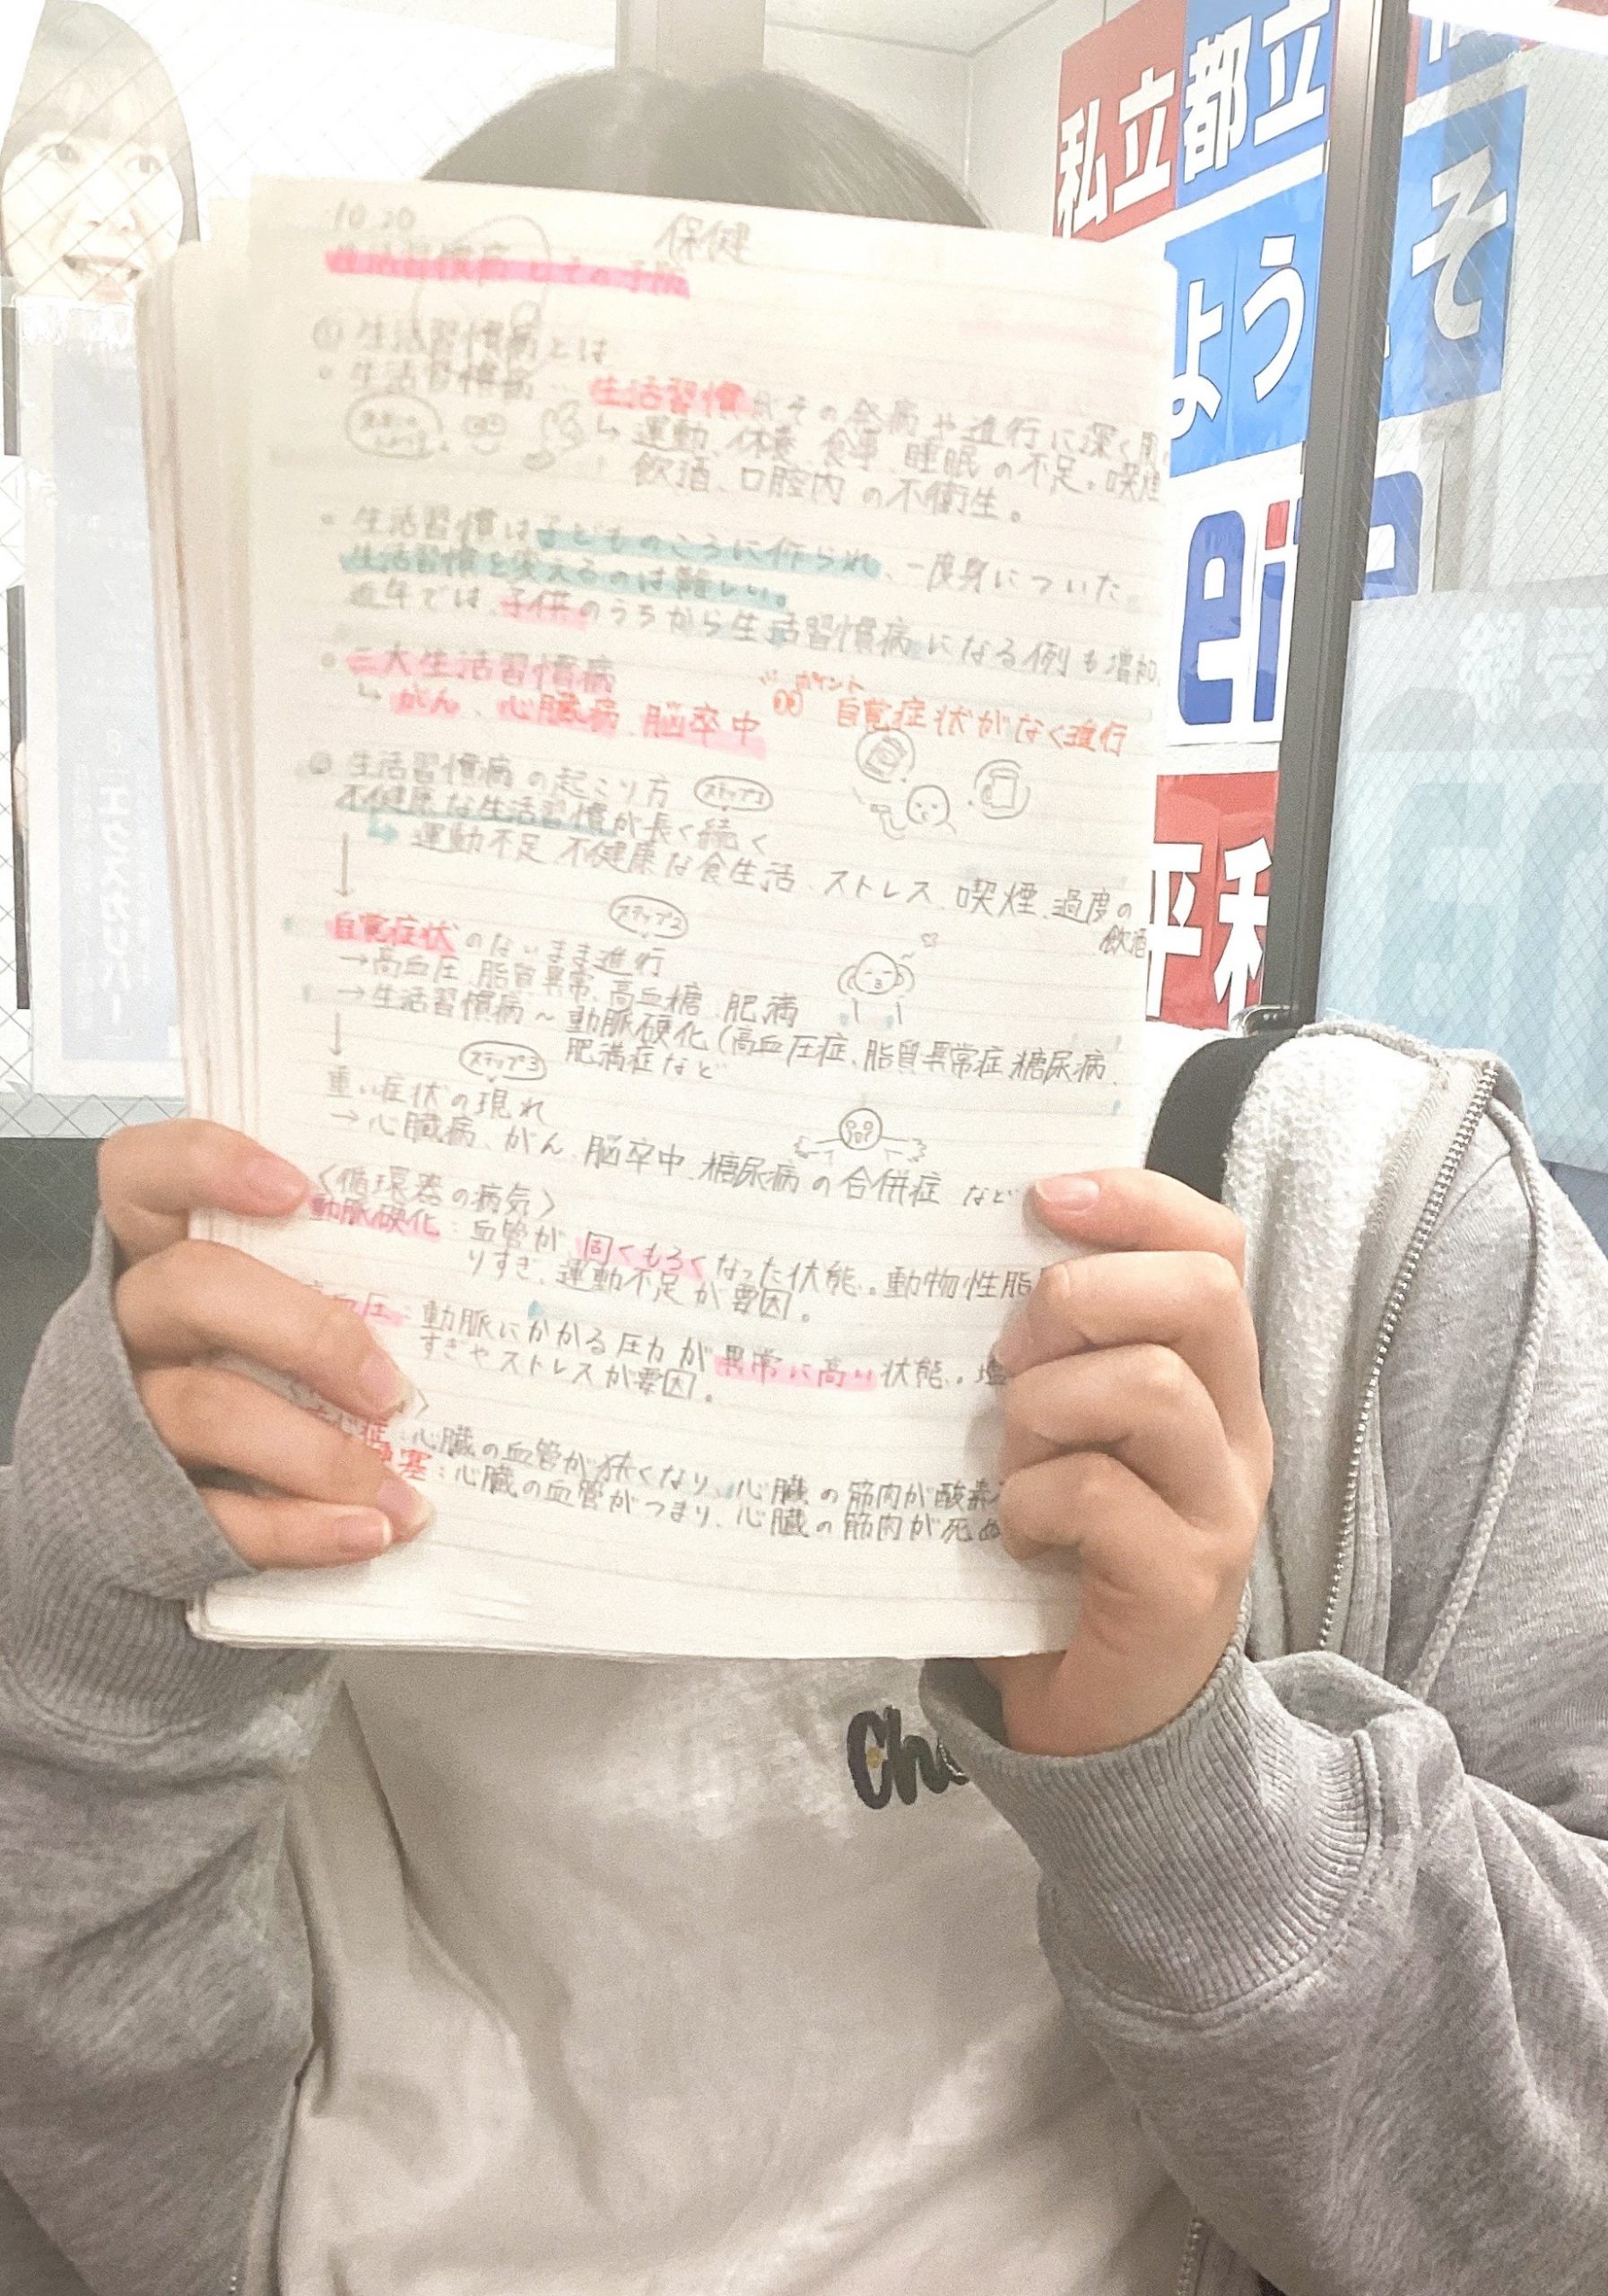 10.20
保健
生活習慣病とその予防
① 生活習慣病とは
・生活習慣病… 生活習慣がその発病や進行に深く関
↳ 運動、休養、食事、睡眠の不足。喫煙
飲酒、口腔内の不衛生。
・生活習慣は子どものころに作られ、一度身についた
生活習慣を変えるのは難しい。
近年では、子供のうちから生活習慣病になる例も増加。
・三大生活習慣病
↳ がん、心臓病、脳卒中
ポイント
自覚症状がなく進行
② 生活習慣病の起こり方 ステップ1
不健康な生活習慣が長く続く
↳ 運動不足、不健康な食生活、ストレス、喫煙、過度の
飲酒
↓
ステップ2
自覚症状のないまま進行
→高血圧、脂質異常、高血糖、肥満
→生活習慣病～動脈硬化(高血圧症、脂質異常症、糖尿病、
肥満症など
↓
ステップ3
重い症状の現れ
→心臓病、がん、脳卒中、糖尿病の合併症 など
〈循環器の病気〉
動脈硬化：血管が固くもろくなった状態。動物性脂
りすぎ、運動不足が要因。
血圧：動脈にかかる圧力が異常に高い状態。塩
すぎやストレスが要因。
症：心臓の血管が狭くなり、心臓の筋肉が酸素
塞：心臓の血管がつまり、心臓の筋肉が死ぬ
Ch
私立都立
ようこそ
ei
平和
「エクスカリバー」